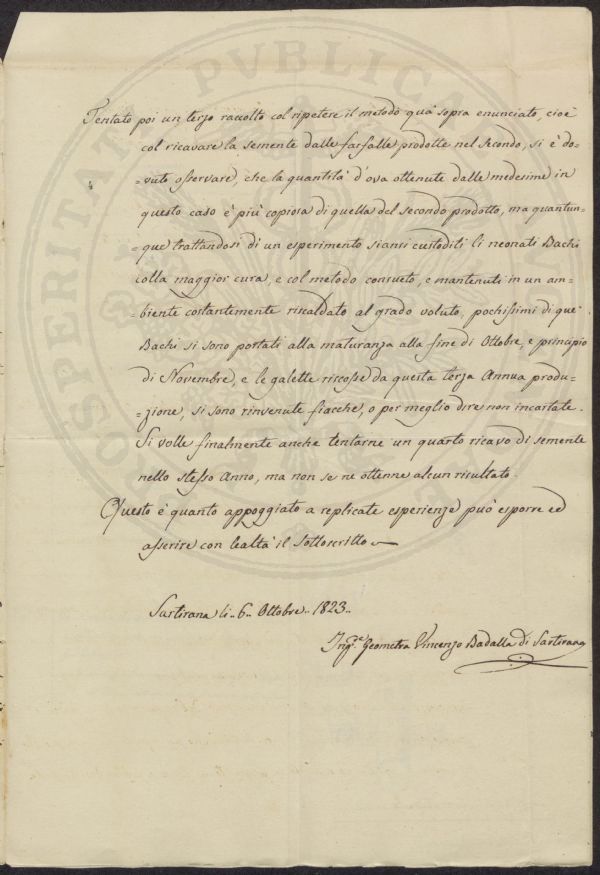 Tentato poi un terzo raccolto col ripetere il metodo quà sopra enunciato, cioè
col ricavare la semente dalle farfalle prodotte nel secondo, si è do=
=vuto osservare, che la quantità d'ova ottenute dalle medesime in
questo caso è più copiosa di quella del secondo prodotto, ma quantun=
=que trattandosi di un esperimento siansi custoditi li neonati Bachi
colla maggior cura, e col metodo consueto, e mantenuti in un am=
=biente costantemente riscaldato al grado voluto, pochissimi di que'
Bachi si sono portati alla maturanza alla fine di Ottobre, e principio
di Novembre, e le galette riscosse da questa terza Annua produ=
=zione, si sono rinvenute fiacche, o per meglio dire non incartate.
Si volle finalmente anche tentarne un quarto ricavo di semente
nello stesso Anno, ma non se ne ottenne alcun risultato.
Questo è quanto appoggiato a replicate esperienze può esporre ed
asserire con lealtà il Sottoscritto
Sartirana li.. 6.. Ottobre.. 1823..
Ing.e Geometra Vincenzo Badalla di Sartirana
PROSPERITATI PVBLICAE